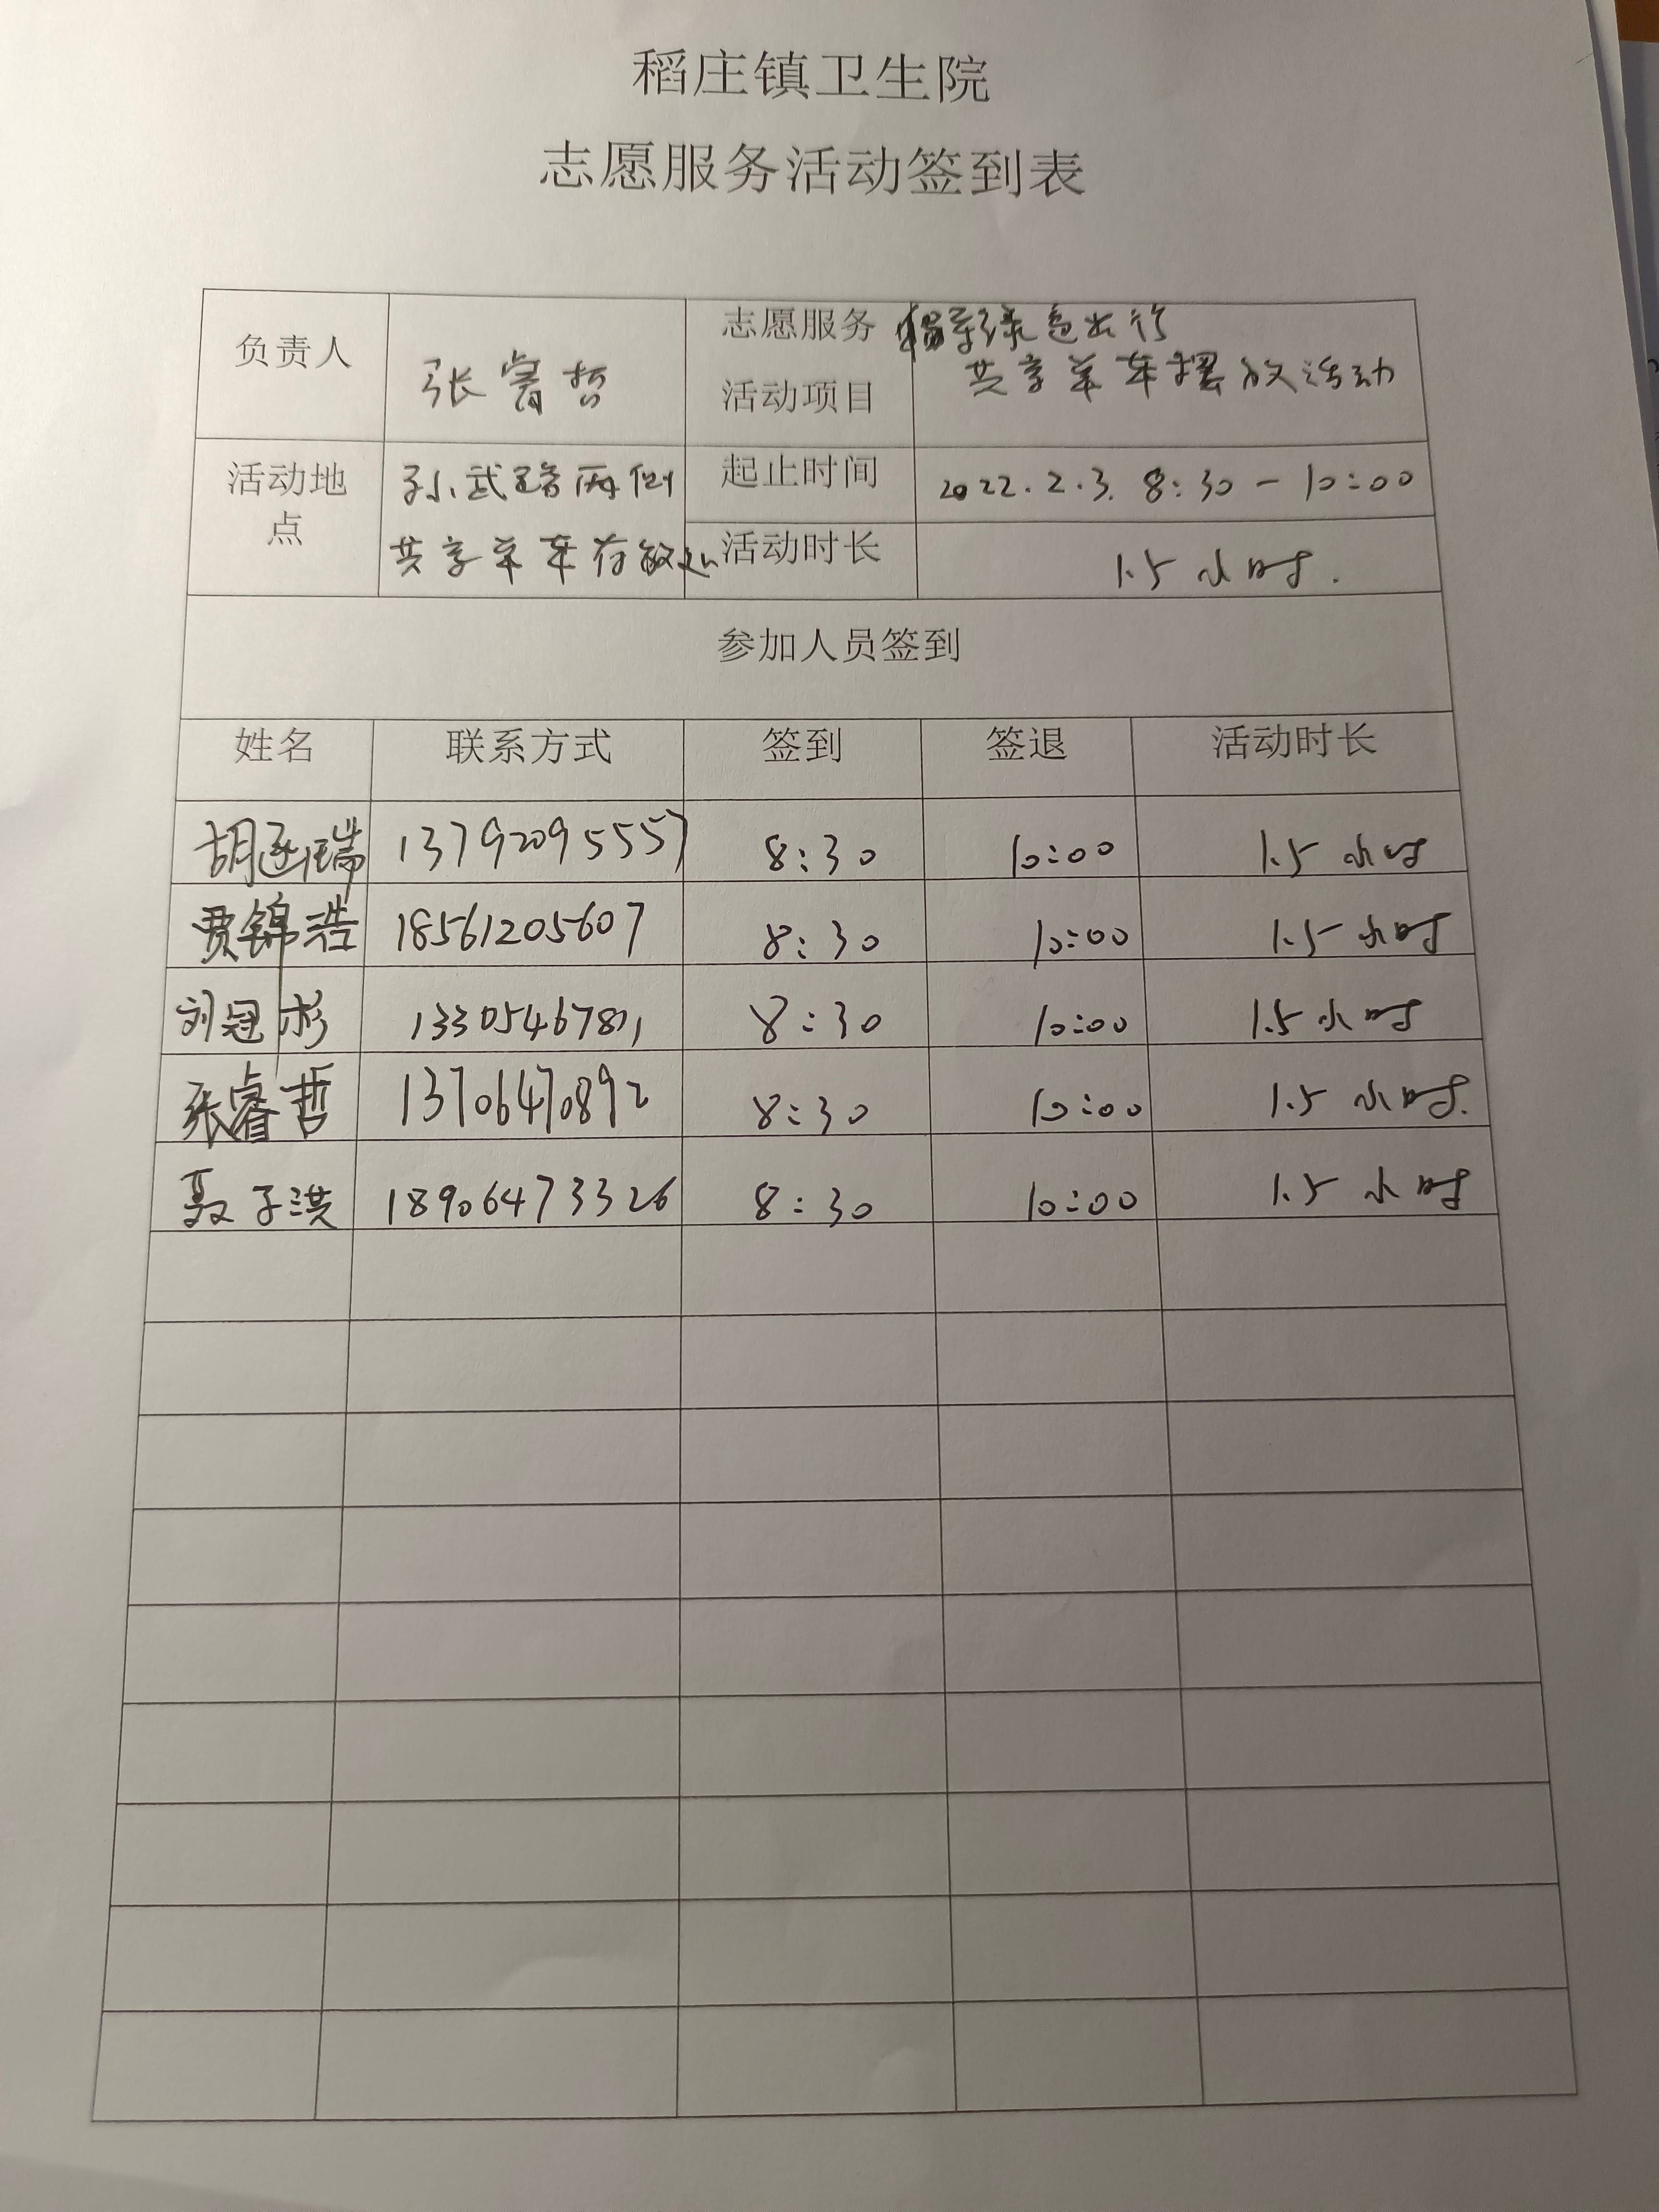 稻庄镇卫生院
志愿服务活动签到表
负责人 张睿哲 志愿服务活动项目 倡导绿色出行
共享单车摆放活动
活动地点 孙武路两侧 起止时间 2022.2.3. 8:30-10:00
共享单车存放处 活动时长 1.5小时.
参加人员签到
姓名 联系方式 签到 签退 活动时长
胡 瑞 13792095557 8:30 10:00 1.5小时
贾锦浩 18561205607 8:30 10:00 1.5小时
刘冠杉 8:30 10:00 1.5小时
张睿哲 13706470892 8:30 10:00 1.5小时.
聂子淇 18906473326 8:30 10:00 1.5小时